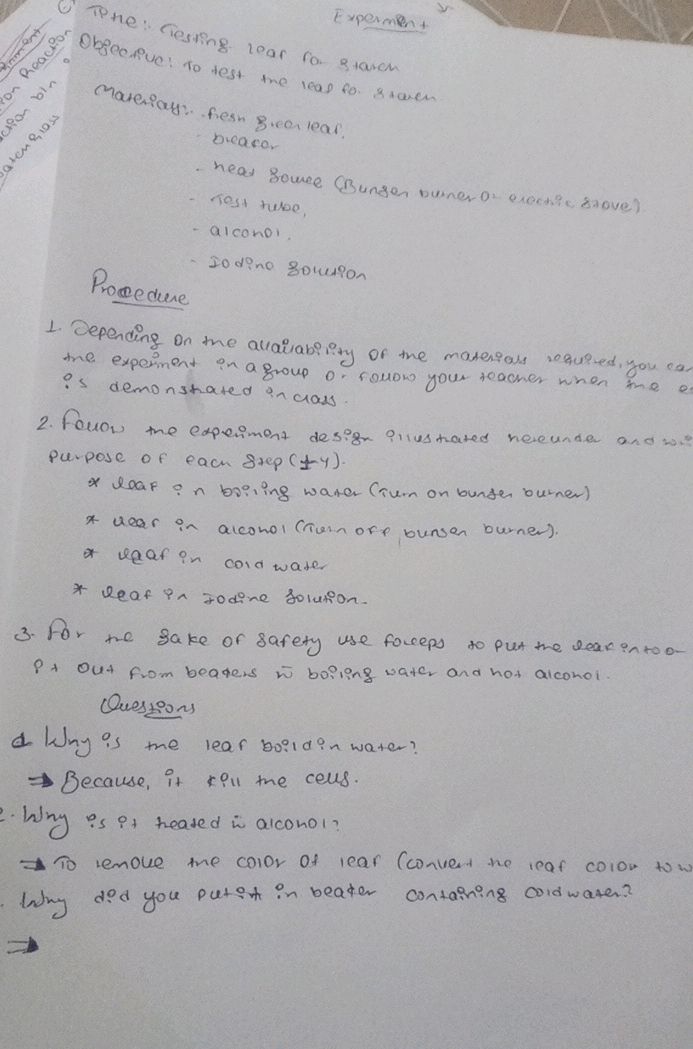 Experiment
Title: Testing leaf for starch
Objective: To test the leaf for starch
Materials: fresh green leaf,
- beaker
- heat source (Bunsen burner or electric stove)
- Test tube,
- alcohol,
- Iodine solution
Procedure
1. Depending on the availability of the materials required, you can
the experiment in a group or follow your teacher when the e
is demonstrated in class.
2. Follow the experiment design illustrated hereunder and wri
purpose of each step (1-4).
* leaf in boiling water (turn on bunsen burner)
* leaf in alcohol (turn off bunsen burner).
* leaf in cold water
* leaf in Iodine solution.
3. For the sake of safety use forceps to put the leaf into or
it out from beakers w boiling water and hot alcohol.
Questions
1. Why is the leaf boild in water?
⇒ Because, it kill the cells.
2. Why is it heated in alcohol?
⇒ To remove the color of leaf (convert the leaf color to w
. Why did you put it in beaker containing cold water?
⇒